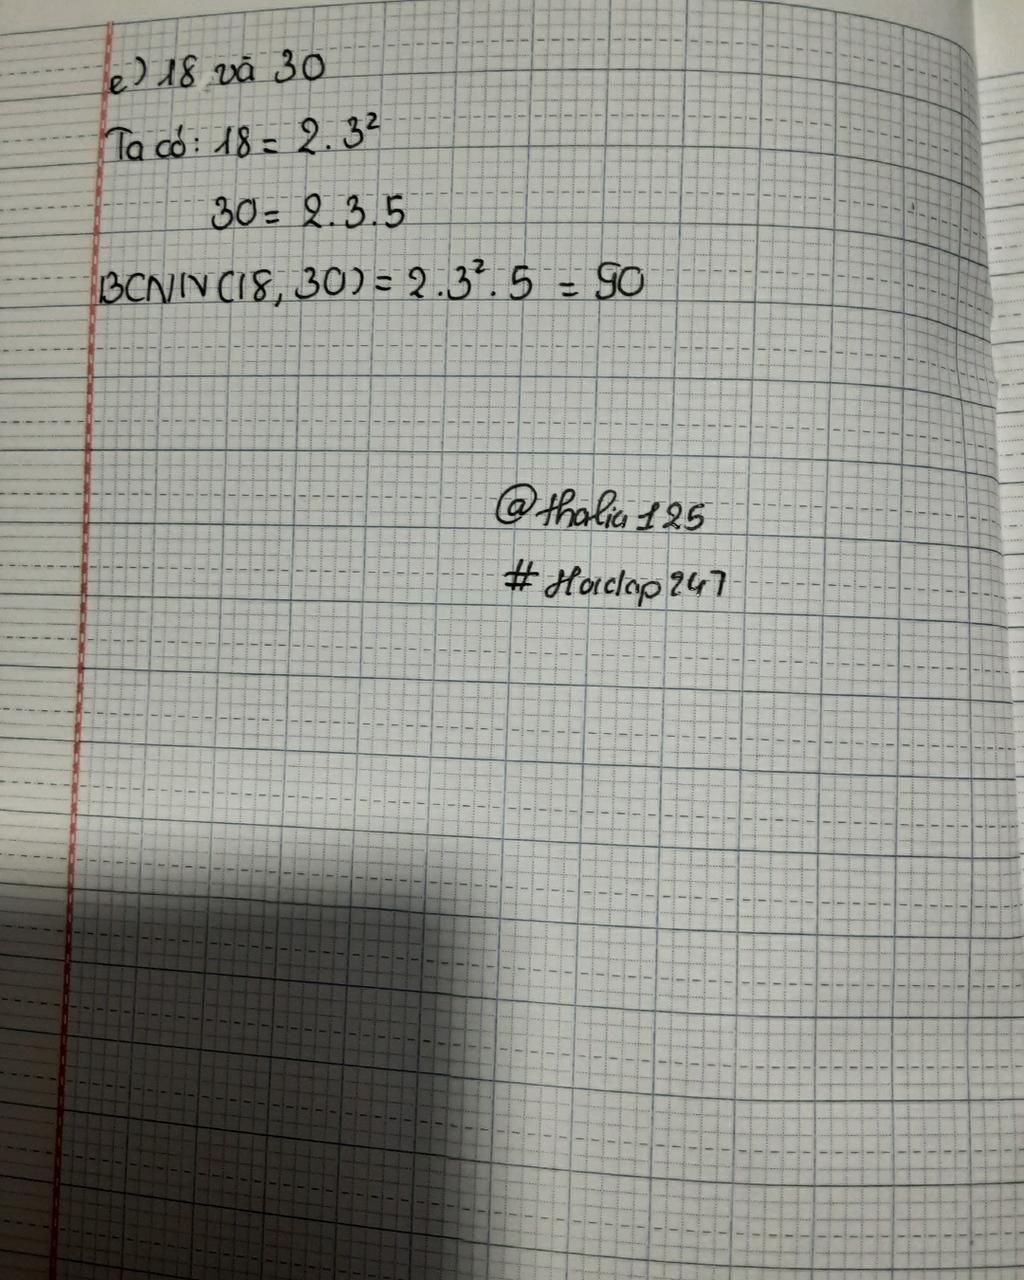 e) 18 và 30
Ta có: 18 = 2.3²
30 = 2.3.5
BCNN(18, 30) = 2.3².5 = 90
@thalia125
#Hoidap247